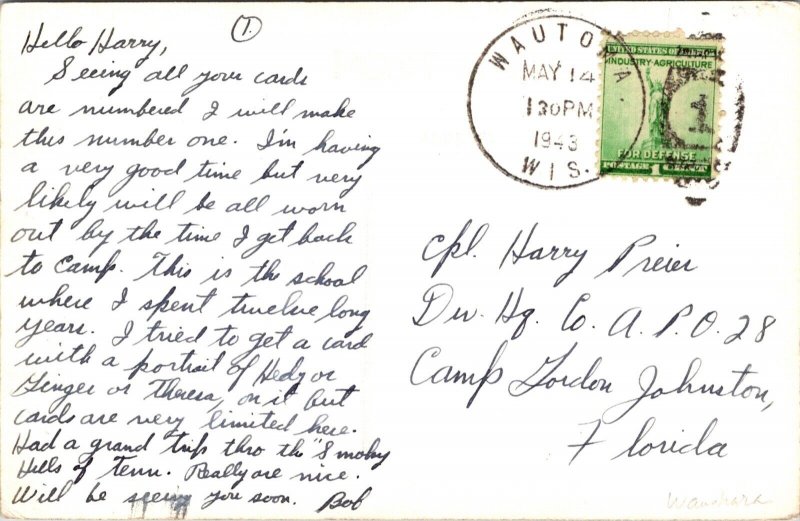 1.
Hello Harry,
Seeing all your cards
are numbered I will make
this number one. I'm having
a very good time but very
likely will be all worn
out by the time I get back
to Camp. This is the school
where I spent twelve long
years. I tried to get a card
with a portrait of Hedy or
Ginger or Theresa, on it but
cards are very limited here.
Had a grand trip thro the "Smoky
Hills of Tenn. Really are nice.
Will be seeing you soon. Bob
WAUTOMA.
MAY 14
1 30 PM
1943
WIS.
UNITED STATES OF AMERICA
INDUSTRY·AGRICULTURE
FOR DEFENSE
POSTAGE 1 CENT
Cpl. Harry Preier
Div. Hq. Co. A.P.O. 28
Camp Gordon Johnston,
Florida
Waushara